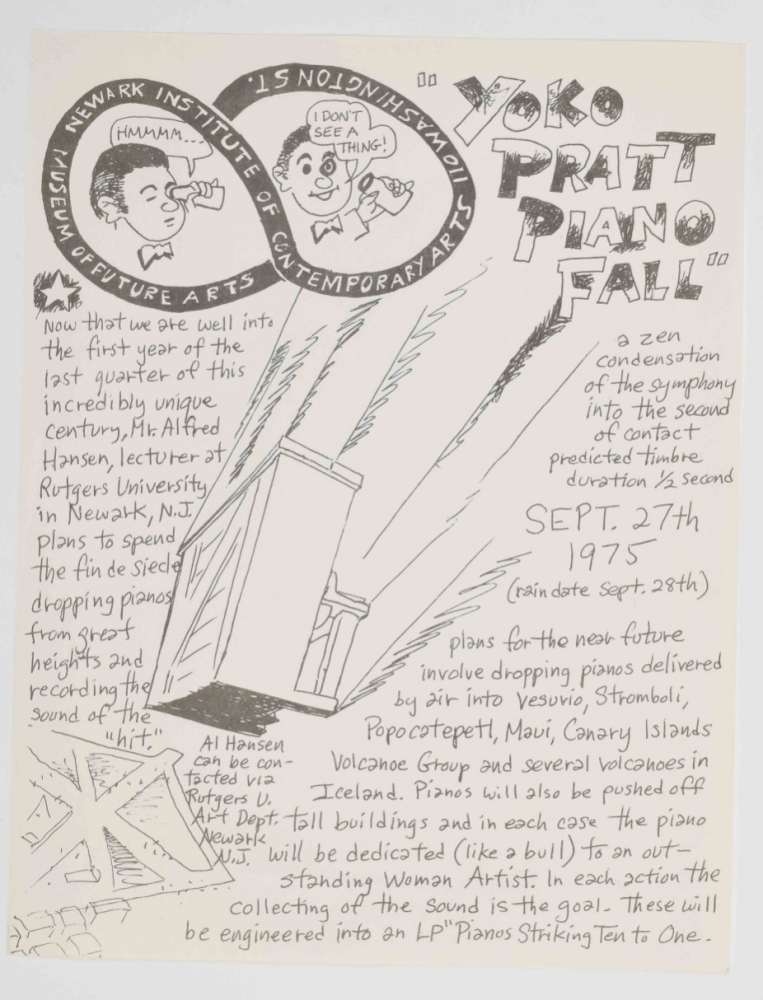 NEWARK INSTITUTE OF CONTEMPORARY ARTS
110 WASHINGTON ST.
MUSEUM OF FUTURE ARTS
HMMMM...
I DON'T
SEE A
THING!
"YOKO
PRATT
PIANO
FALL"
Now that we are well into
the first year of the
last quarter of this
incredibly unique
century, Mr. Alfred
Hansen, lecturer at
Rutgers University
in Newark, N.J.
plans to spend
the fin de siecle
dropping pianos
from great
heights and
recording the
sound of the
"hit."
Al Hansen
can be con-
tacted via
Rutgers U.
Art Dept.
Newark
N.J.
a zen
condensation
of the symphony
into the second
of contact
predicted timbre
duration 1/2 second
SEPT. 27th
1975
(rain date Sept. 28th)
plans for the near future
involve dropping pianos delivered
by air into Vesuvio, Stromboli,
Popocatepetl, Maui, Canary Islands
Volcanoe Group and several volcanoes in
Iceland. Pianos will also be pushed off
tall buildings and in each case the piano
will be dedicated (like a bull) to an out-
standing Woman Artist. In each action the
collecting of the sound is the goal. These will
be engineered into an LP "Pianos Striking Ten to One.